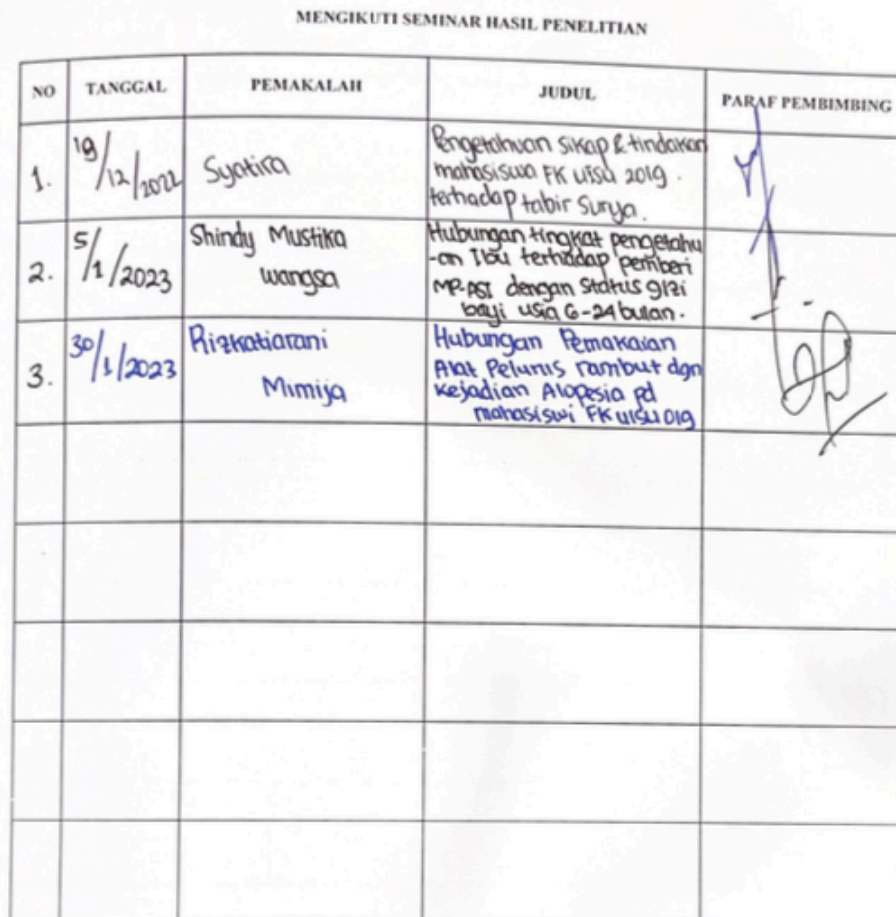 MENGIKUTI SEMINAR HASIL PENELITIAN
NO TANGGAL PEMAKALAH JUDUL PARAF PEMBIMBING
1. 19/12/2022 Syatira Pengetahuan sikap & tindakan
mahasiswa FK UISU 2019.
terhadap tabir surya.
2. 5/1/2023 Shindy Mustika Hubungan tingkat pengetahu
wangsa -an Ibu terhadap pemberi
MP-ASI dengan status gizi
bayi usia 6-24 bulan.
3. 30/1/2023 Rizkatiarani Hubungan Pemakaian
Mimija Alat Pelurus rambut dgn
kejadian Alopesia pd
mahasiswi FK UISU 019